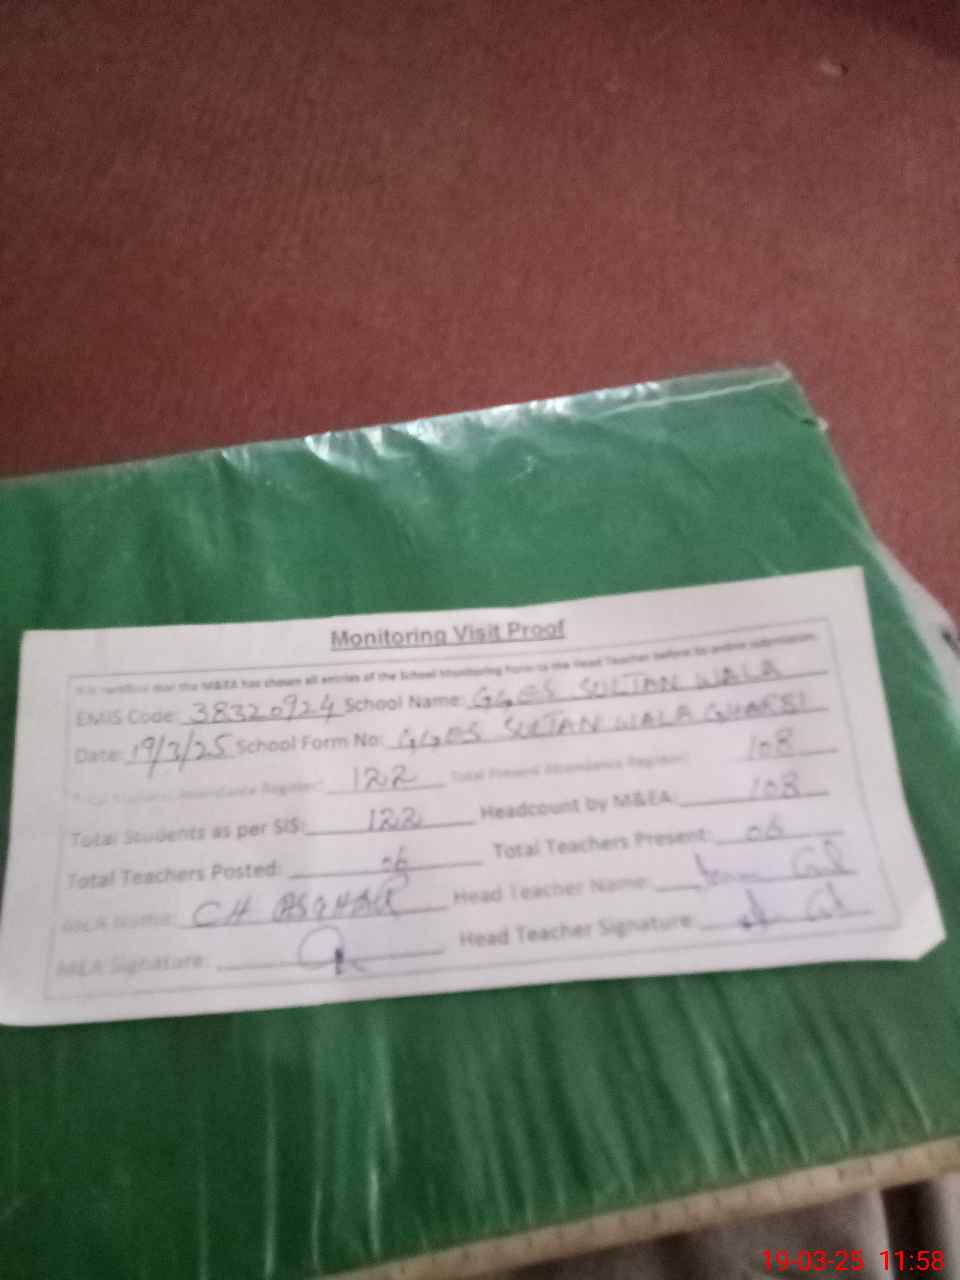 Monitoring Visit Proof
It is certified that the M&EA has shown all entries of the School Monitoring Form to the Head Teacher before its online submission.
EMIS Code: 38320924 School Name: GGES SULTAN WALA
Date: 19/3/25 School Form No: GGES SULTAN WALA GHARBI
Total Students Attendance Register: 122 Total Present Attendance Register: 108
Total Students as per SIS: 122 Headcount by M&EA: 108
Total Teachers Posted: 06 Total Teachers Present: 06
MEA Name: CH ASGHAR Head Teacher Name:
MEA Signature: Head Teacher Signature:
19-03-25 11:58